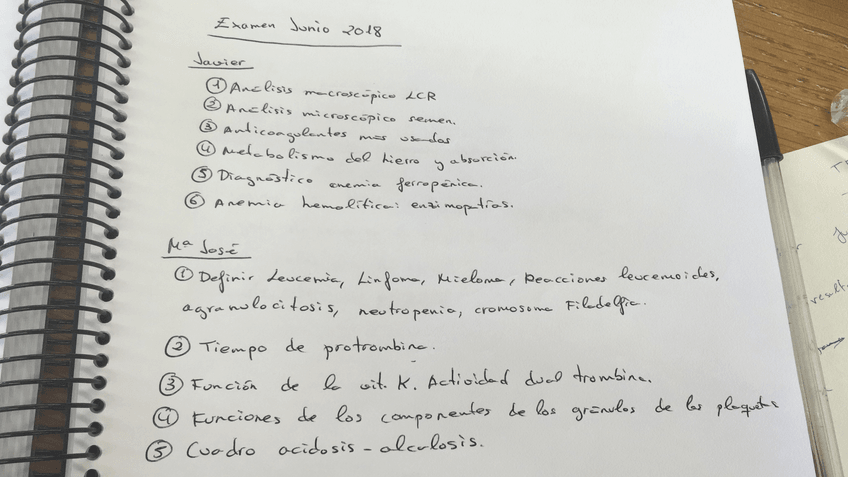 Examen Junio 2018
Javier
① Análisis macroscópico LCR
② Análisis microscópico semen.
③ Anticoagulantes más usados
④ Metabolismo del hierro y absorción.
⑤ Diagnóstico anemia ferropénica.
⑥ Anemia hemolítica: enzimopatías.
Mª José
① Definir Leucemia, Linfoma, Mieloma, Reacciones leucemoides,
agranulocitosis, neutropenia, cromosoma Filadelfia.
② Tiempo de protrombina.
③ Función de la vit. K. Actividad dual trombina.
④ Funciones de los componentes de los gránulos de las plaquetas
⑤ Cuadro acidosis - alcalosis.
result